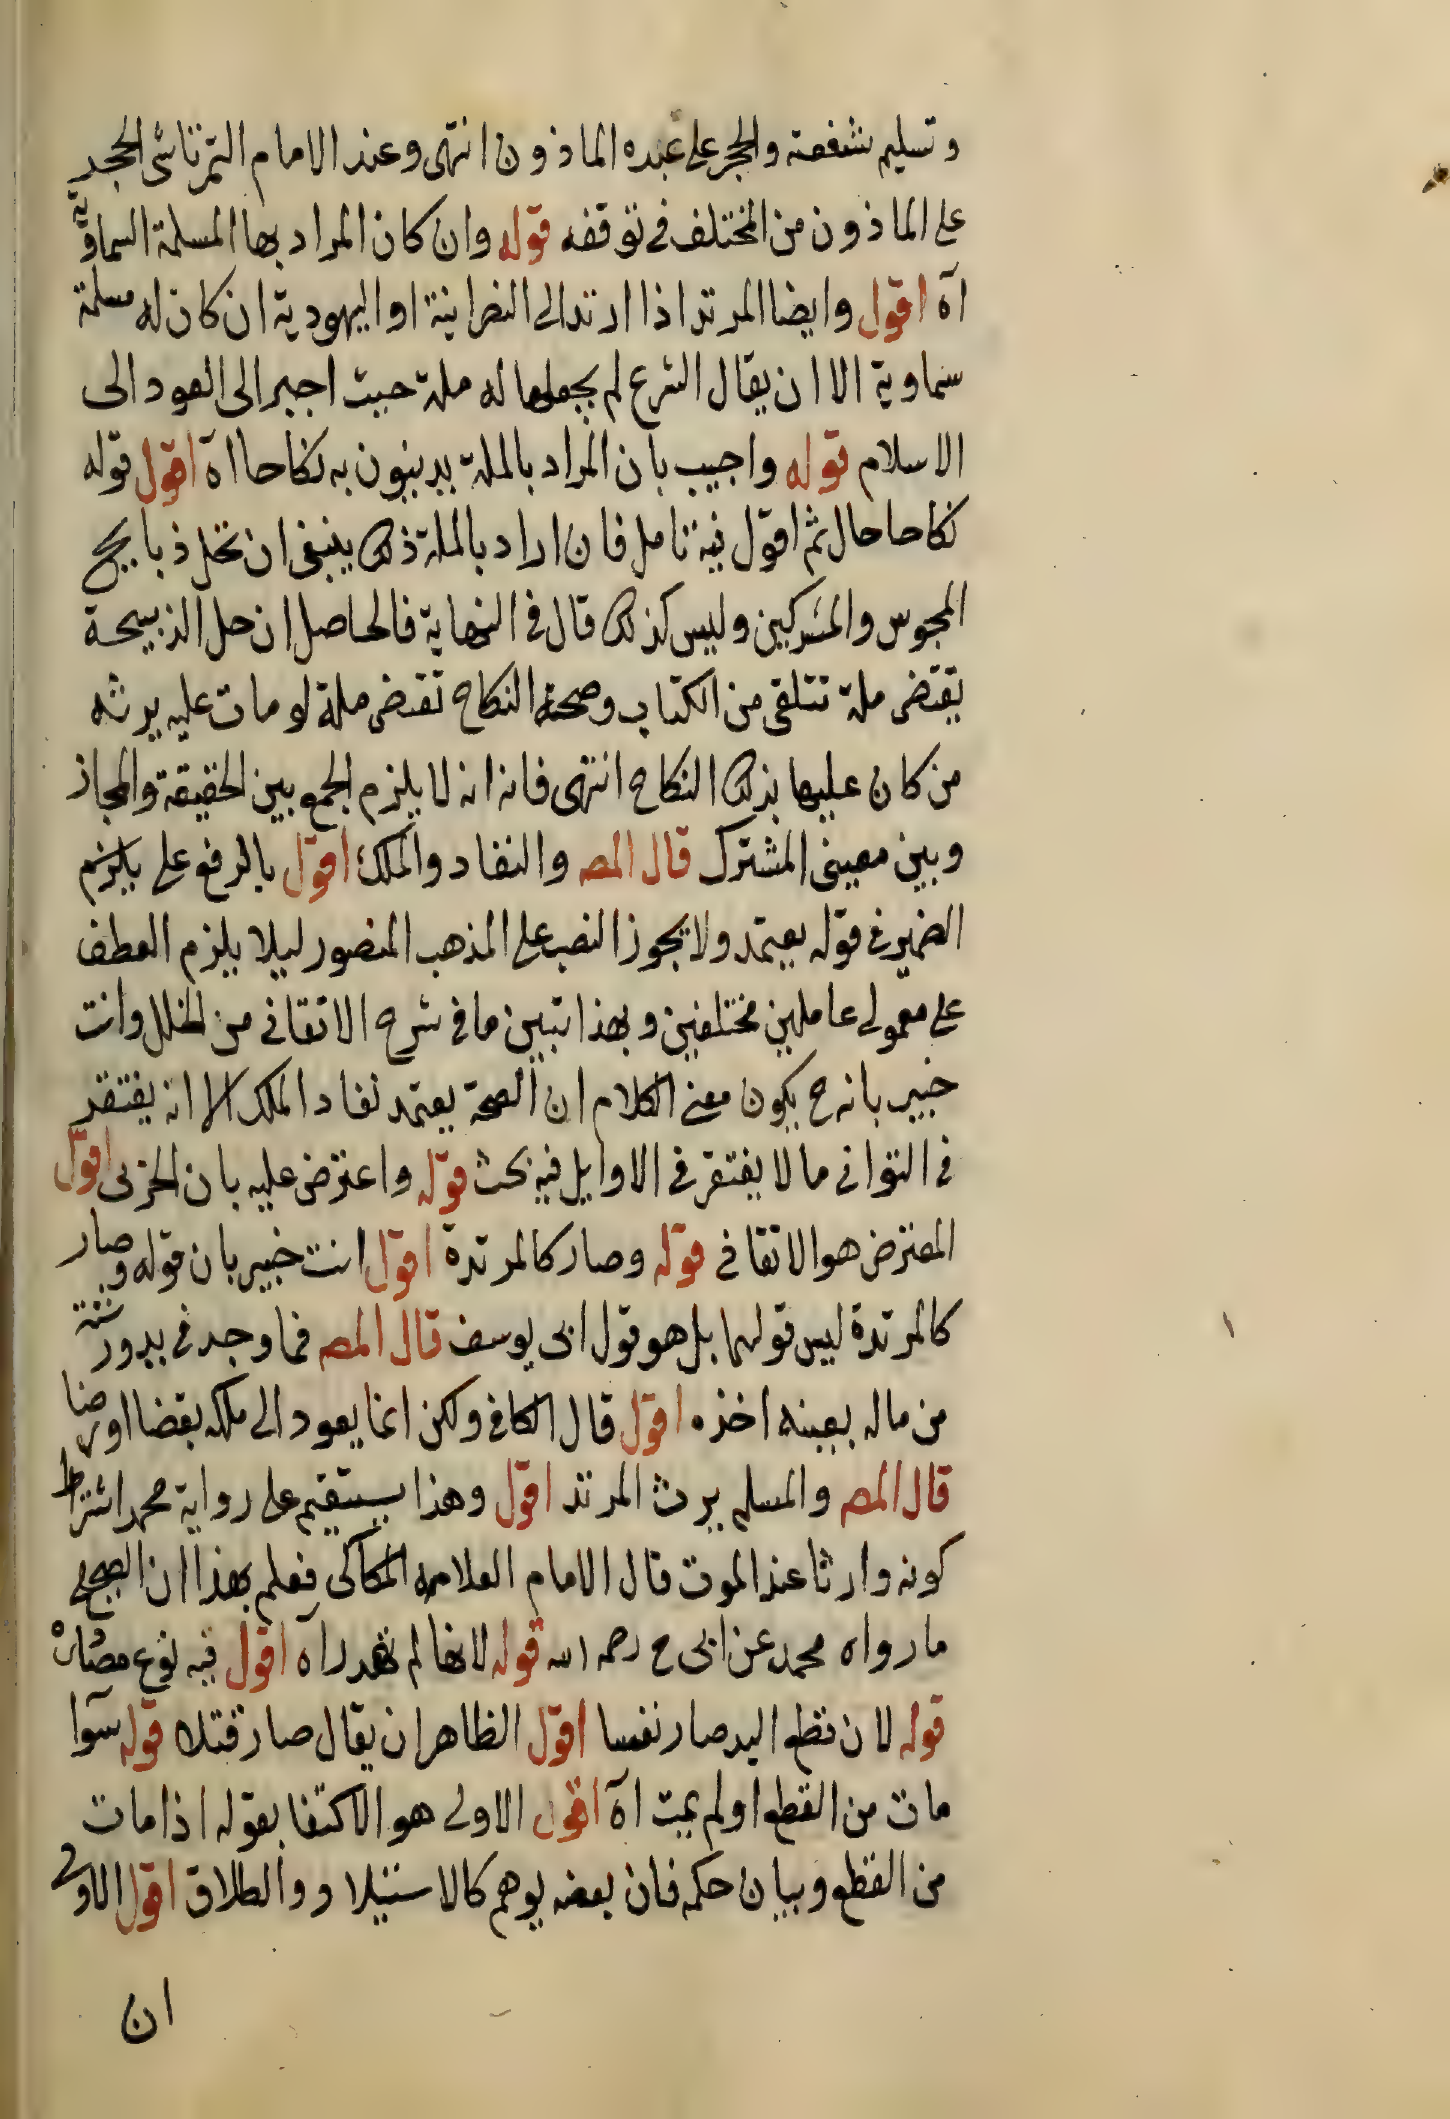 و تسليم شفعة والحجر على عبده الماذون انتهى وعند الامام التمرتاشى الحجر
على الماذون من المختلف فى توقفه قوله وان كان المراد بها المسلمة السماوية
آه اقول وايضا المرتد اذا ارتد الى النصرانية او اليهودية ان كان له مسلمة
سماوية الا ان يقال الشرع لم يجعلها له ملة حيث اجبر الى العود الى
الاسلام قوله واجيب بان المراد بالملة يدينون به نكاحا آه اقول قوله
نكاحا حال ثم اقول فيه تامل فان اراد بالملة ذلك ينبغى ان تحل ذبايح
المجوس والمشركين وليس كذلك قال فى النهاية فالحاصل ان حل الذبيحة
يقتضى ملة تتلقى من الكتاب وصحة النكاح تقتضى ملة لو مات عليه يرثه
من كان عليها بذلك النكاح انتهى فانه انه لا يلزم الجمع بين الحقيقة والمجاز
وبين معينى المشترك قال المص والنفاد والملك اقول بالرفع على يلزم
الضمير فى قوله يعتمد ولا يجوز النصب على المذهب المنصور ليلا يلزم العطف
على معمولى عاملين مختلفين وبهذا تبين ما فى شرح الاتقانى من الخلل وانت
خبير بانه ح يكون معنى الكلام ان الصحة يعتمد نفاد الملك الا انه يفتقد
فى التوانى ما لا يفتقر فى الاوايل فيه بحث قوله واعترض عليه بان الحربى اقول
المعترض هو الاتقانى قوله وصار كالمرتدة اقول انت خبير بان قوله وصار
كالمرتدة ليس قولهما بل هو قول ابى يوسف قال المص فما وجد فى يد ورثته
من ماله بعينه اخذه اقول قال الكافى ولكن انما يعود الى ملكه بقضا او رضا
قال المص والمسلم يرث المرتد اقول وهذا يستقيم على رواية محمد اشتراط
كونه وارثا عند الموت قال الامام العلامه الكاكى فعلم بهذا ان الصحيح
ما رواه محمد عن ابى ح رحمه الله قوله لانها لم تهدر آه اقول فيه نوع مصادرة
قوله لان قطع اليد صار نفسا اقول الظاهر ان يقال صار قتلا قوله سوآ
مات من القطع او لم يمت آه اقول الاولى هو الاكتفا بقوله اذا مات
من القطع وبيان حكمه فان بعضه يوهم كالاستيلاد والطلاق اقول الاولى
ان